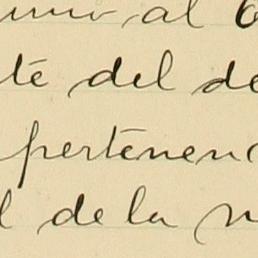 al
te del de
pertenen
l de la